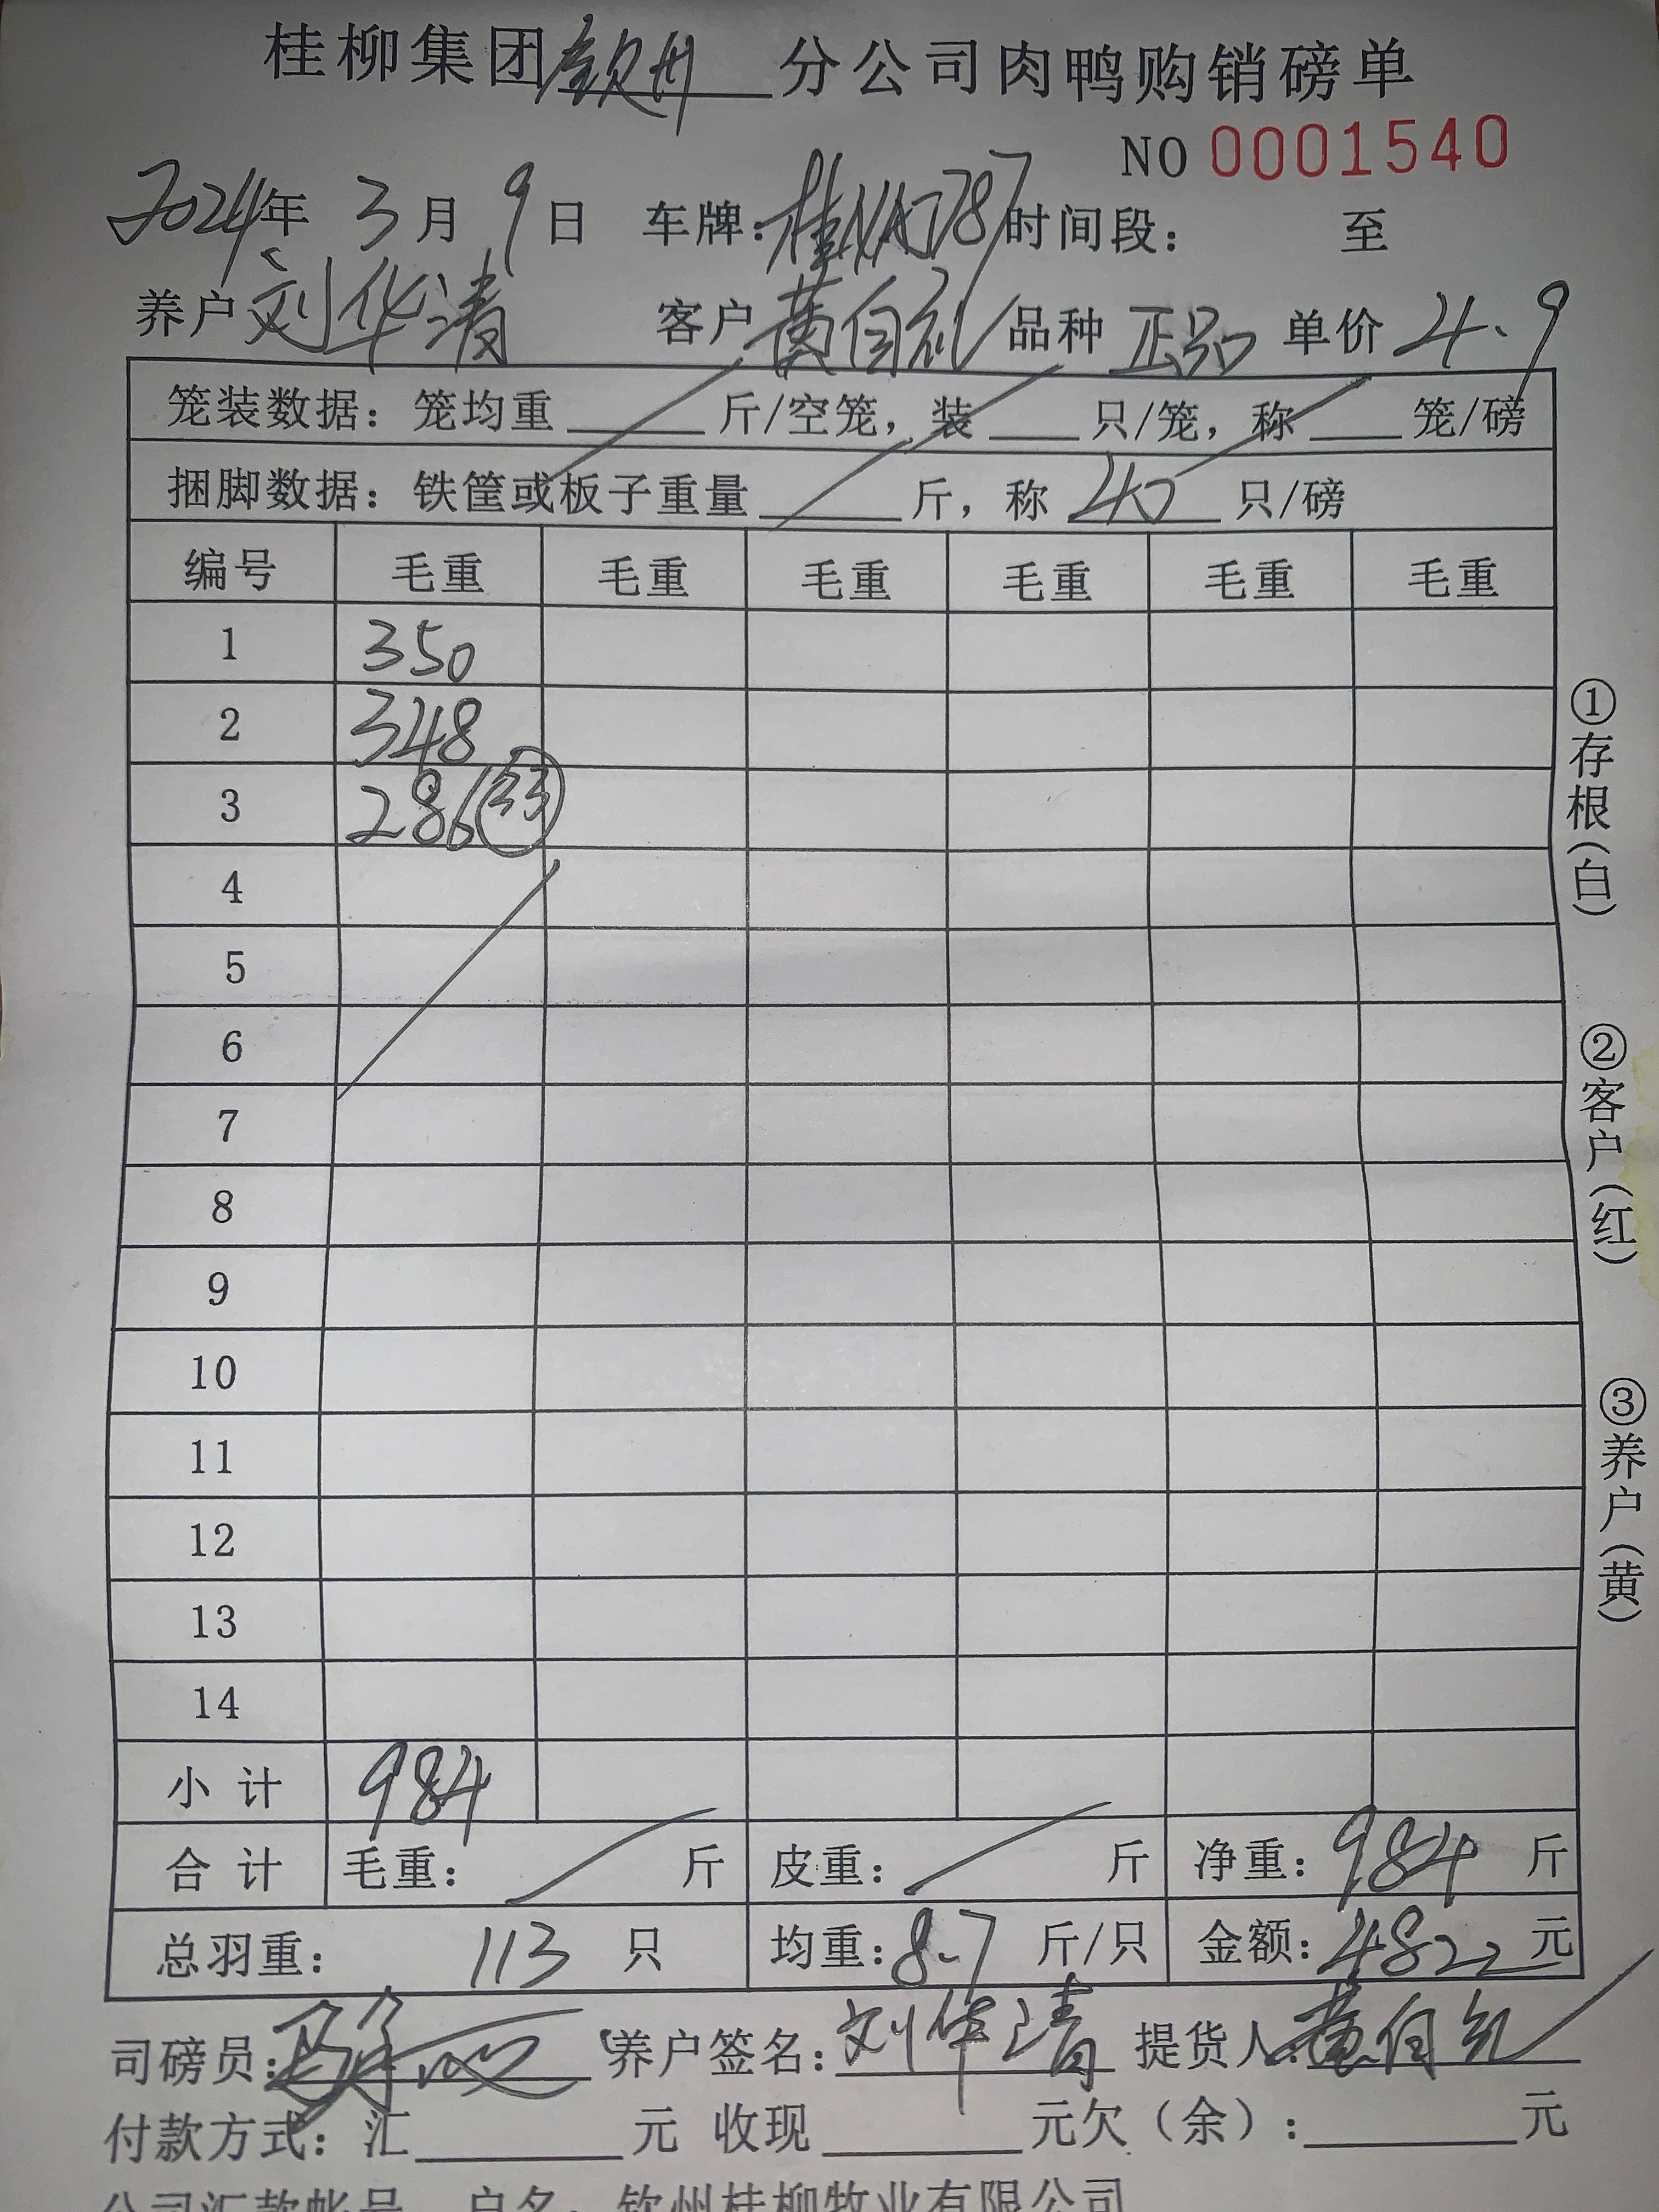 桂柳集团钦州分公司肉鸭购销磅单
NO 0001540
2024年 3月 9日 车牌:桂NA7787 时间段: 至
养户 刘华清 客户 黄自礼 品种 正品 单价 4.9
笼装数据: 笼均重____斤/空笼, 装____只/笼, 称____笼/磅
捆脚数据: 铁筐或板子重量____斤, 称 40 只/磅
编号 毛重 毛重 毛重 毛重 毛重 毛重
1 350
2 348
3 286 (33)
4
5
6
7
8
9
10
11
12
13
14
小计 984
合计 毛重: 斤 皮重: 斤 净重: 984 斤
总羽重: 113 只 均重: 8.7 斤/只 金额: 4822 元
司磅员: 养户签名: 刘华清 提货人: 黄自礼
付款方式: 汇____元 收现____元欠(余):____元
公司汇款帐号 户名: 钦州桂柳牧业有限公司
①存根(白)
②客户(红)
③养户(黄)